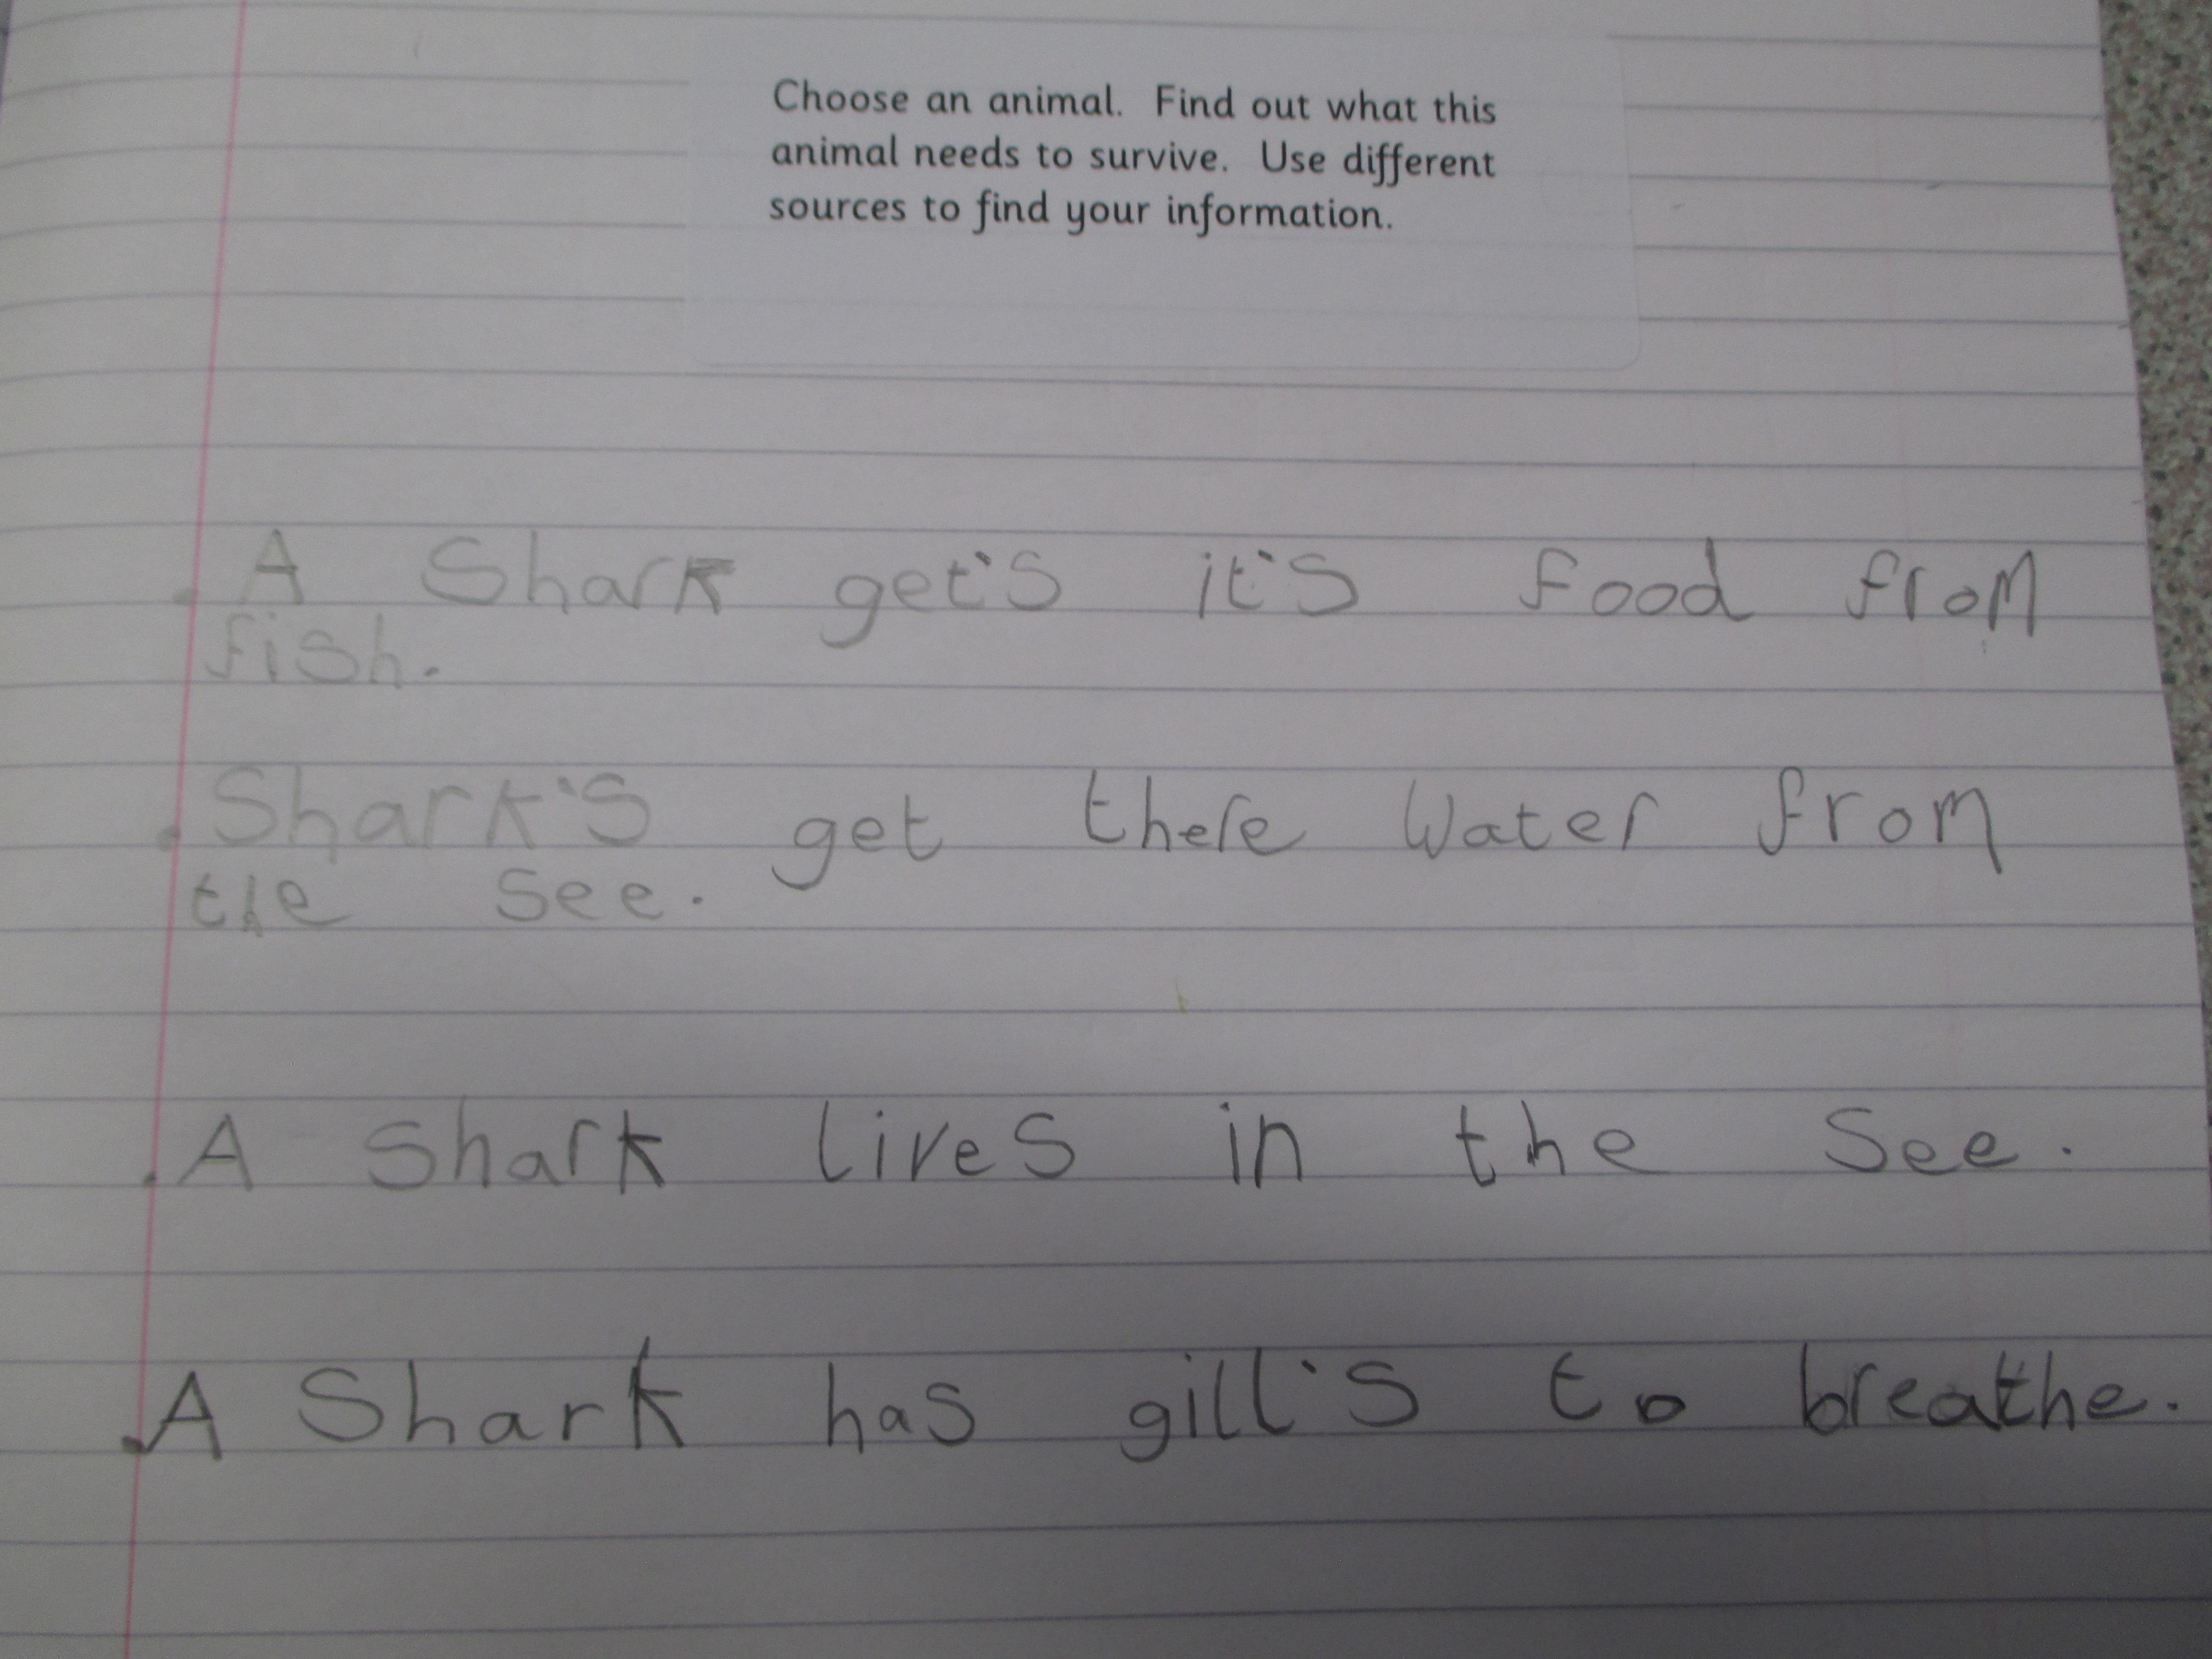 Choose an animal. Find out what this
animal needs to survive. Use different
sources to find your information.
. A Shark get's it's food from
fish.
. Shark's get there Water from
the See.
. A Shark lives in the See.
. A Shark has gill's to breathe.